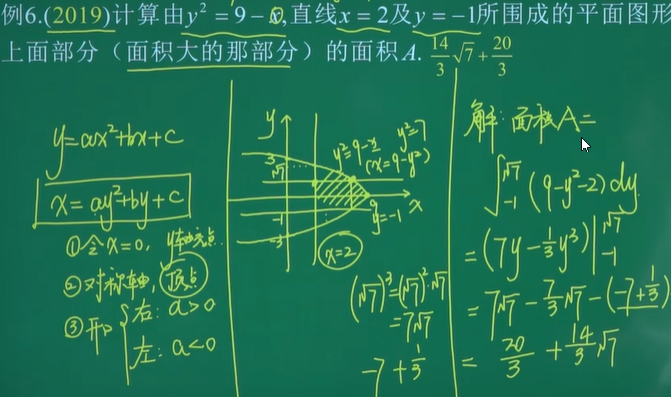 例6.(2019)计算由y² = 9 − x,直线x = 2及y = −1所围成的平面图形
上面部分（面积大的那部分）的面积A. 14/3 √7 + 20/3
y=ax²+bx+c
x = ay²+by+c
①令x=0，y轴交点.
②对称轴, 顶点
③开口 右: a>0
左: a<0
y
3
√7
-1
-3
y²=9-x
(x=9-y²)
y²=7
y=-1
x
x=2
(√7)³=(√7)²·√7
=7√7
-7+1/3
解: 面积A=
∫_{-1}^{√7} (9-y²-2)dy
= (7y-1/3y³)|_{-1}^{√7}
= 7√7 - 7/3√7 - (-7+1/3)
= 20/3 + 14/3√7